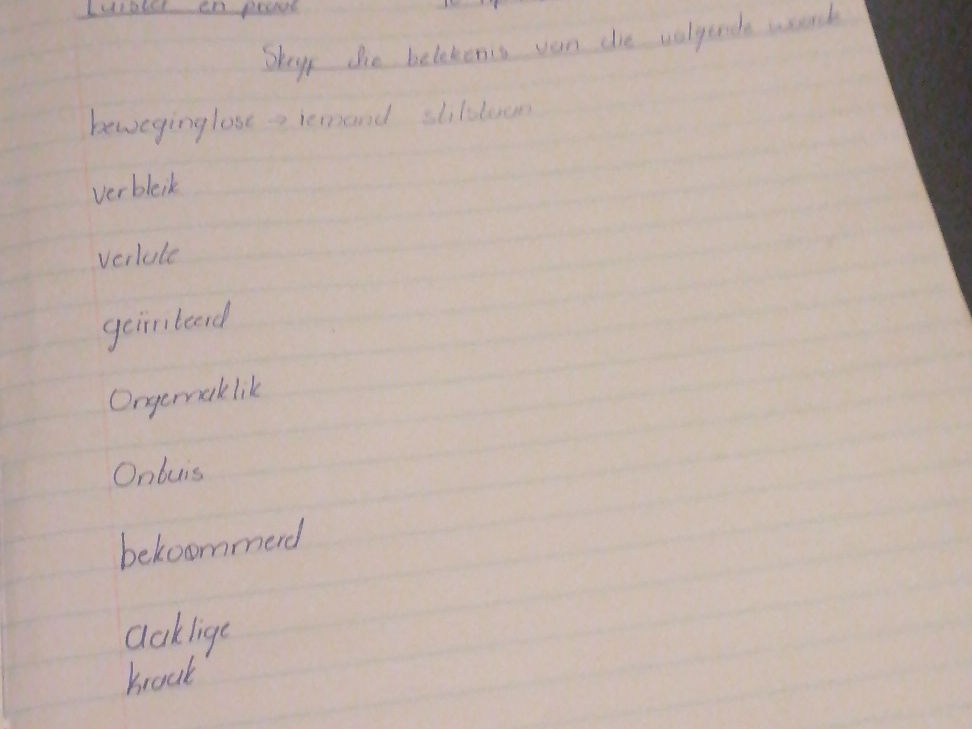 Luister en praat
Skryf die betekenis van die volgende woorde
beweginglose → iemand stilstaan
verbleik
verlate
geïrriteerd
Ongemaklik
Ontuis
bekoommerd
aaklige
kraak